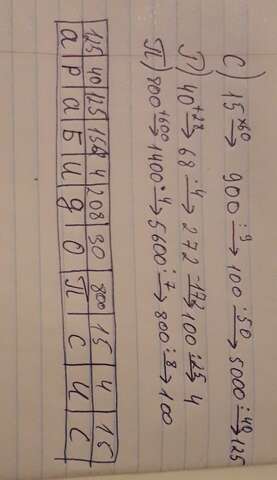 С) 15 ×60→ 900 :9→ 100 ·50→ 5000 :40→ 125
Р) 40 +28→ 68 ·4→ 272 -172→ 100 :25→ 4
П) 800 +600→ 1400 ·4→ 5600 :7→ 800 :8→ 100
125 40 125 156 4 208 30 800 15 4 15
а р а б и д о п с и с